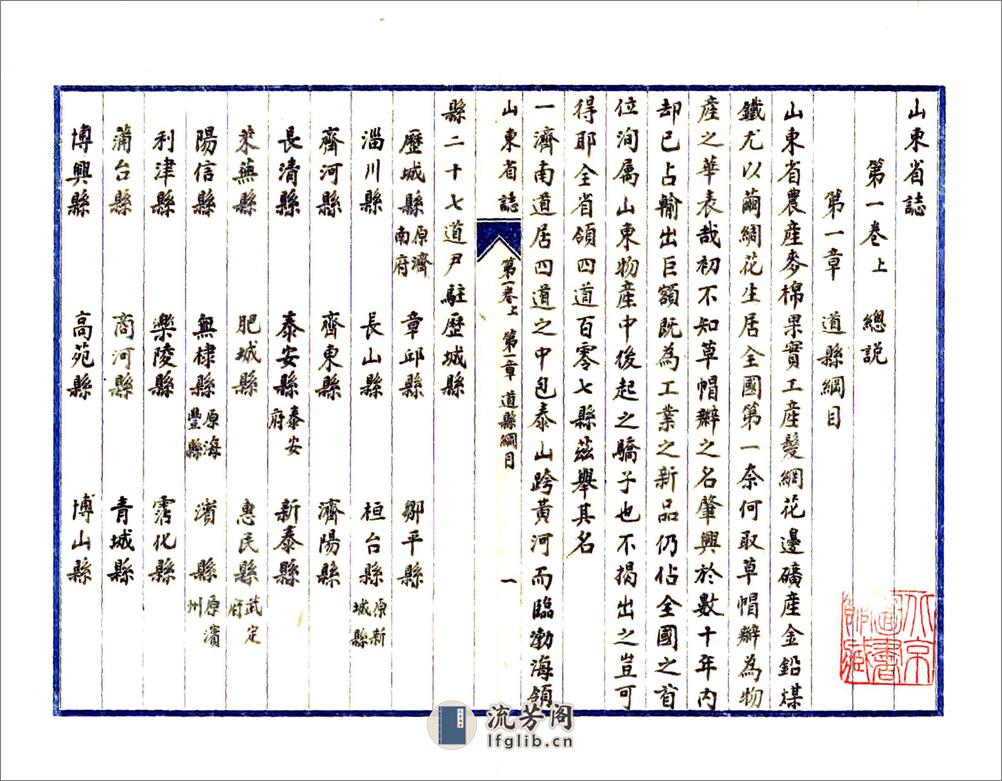 山東省誌
第一卷上　總説
第一章　道縣綱目
山東省農產麥棉果實工產髮網花邊礦產金鉛煤
鐵尤以繭綢花生居全國第一奈何取草帽辮為物
產之華表哉初不知草帽辮之名肇興於數十年內
却已占輸出巨額既為工業之新品仍佔全國之首
位洵屬山東物產中後起之驕子也不揭出之豈可
得耶全省領四道百零七縣茲舉其名
一濟南道居四道之中包泰山跨黃河而臨渤海領
山東省誌　第一卷上　第一章　道縣綱目　一
縣二十七道尹駐歷城縣
歷城縣原濟南府　章邱縣　鄒平縣
淄川縣　長山縣　桓台縣原新城縣
齊河縣　齊東縣　濟陽縣
長清縣　泰安縣泰安府　新泰縣
萊蕪縣　肥城縣　惠民縣武定府
陽信縣　無棣縣原海豐縣　濱縣原濱州
利津縣　樂陵縣　霑化縣
蒲台縣　商河縣　青城縣
博興縣　高苑縣　博山縣
流芳阁
lfglib.cn